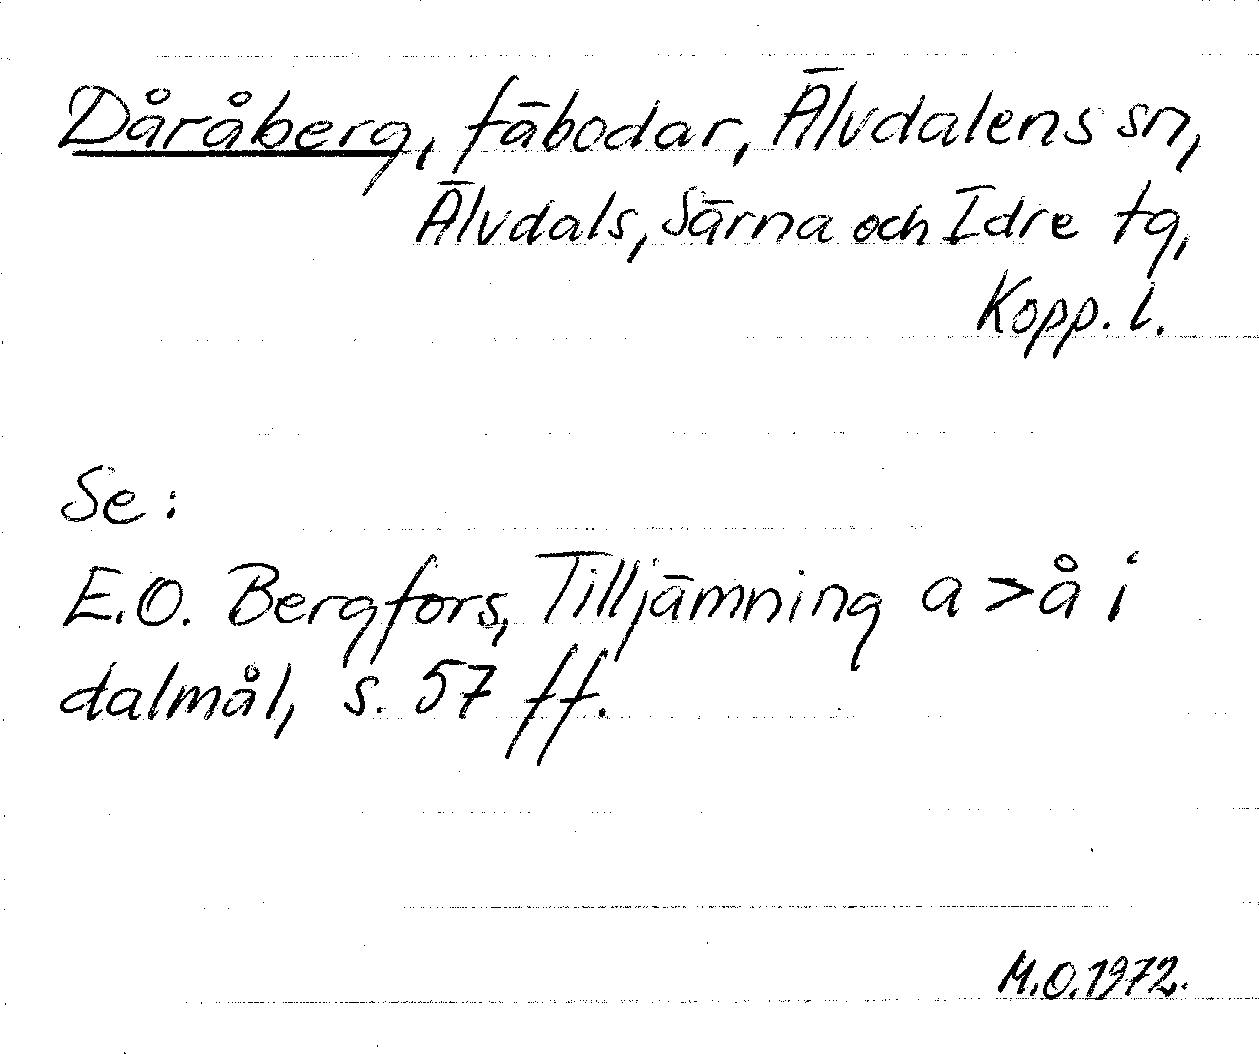 Dåråberg, fäbodar, Älvdalens sn,
Älvdals, Särna och Idre tg,
Kopp. l.
Se:
E.O. Bergfors, Tilljämning a > å i
dalmål, s. 57 ff.
M.O. 1972.